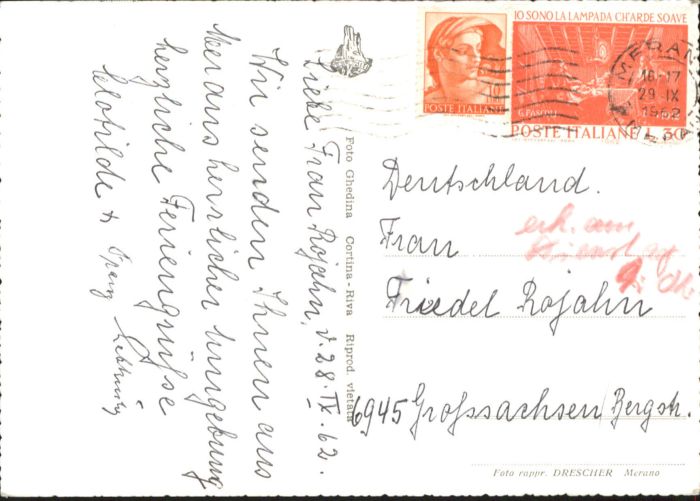 Liebe Frau Rojahn, d. 28. IX. 62.
Wir senden Ihnen aus
Meran aus herrlicher Umgebung
herzliche Feriengrüsse
Clotilde +
Foto Ghedina Cortina - Riva Riprod. vietata
POSTE ITALIANE
IO SONO LA LAMPADA CH'ARDE SOAVE
G. PASCOLI
POSTE ITALIANE L. 30
MERAN
16-17
29. IX
1962
Deutschland.
Frau
erh. am
Dienstag
Friedel Rojahn
6945 Grossachsen/Bergstr.
Foto rappr. DRESCHER Merano